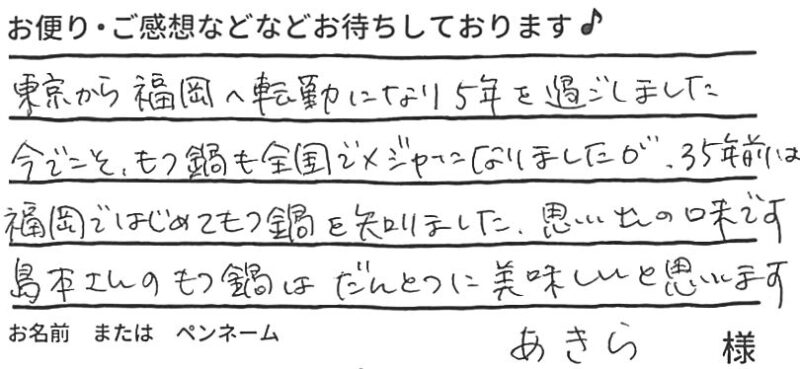 お便り・ご感想などなどお待ちしております♪
東京から福岡へ転勤になり5年を過ごしました
今でこそ、もつ鍋も全国でメジャーになりましたが、35年前は
福岡ではじめてもつ鍋を知りました、思い出の味です
島本さんのもつ鍋はだんとつに美味しいと思います
お名前 または ペンネーム
あきら 様